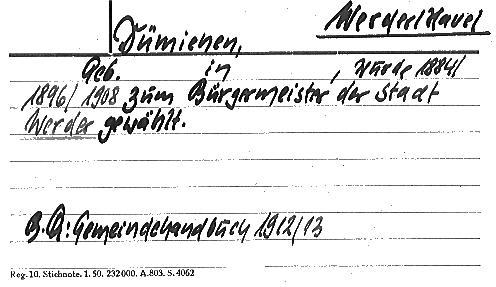 Werder/Havel
Dümichen,
Geb. in , wurde 1884/
1896/1908 zum Bürgermeister der Stadt
Werder gewählt.
B.Q: Gemeindehandbuch 1912/13
Reg. 10. Stichnote. 1. 50. 232000. A. 803. S. 4062